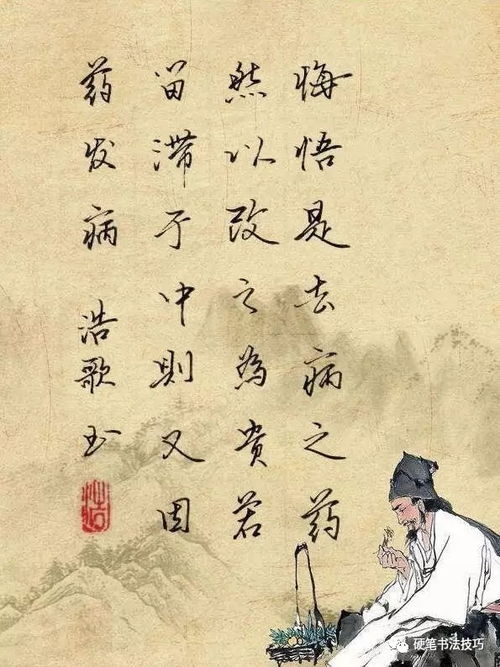 悔悟是去病之药
然以改之为贵若
留滞于中则又因
药发病 浩歌书
浩
硬笔书法技巧